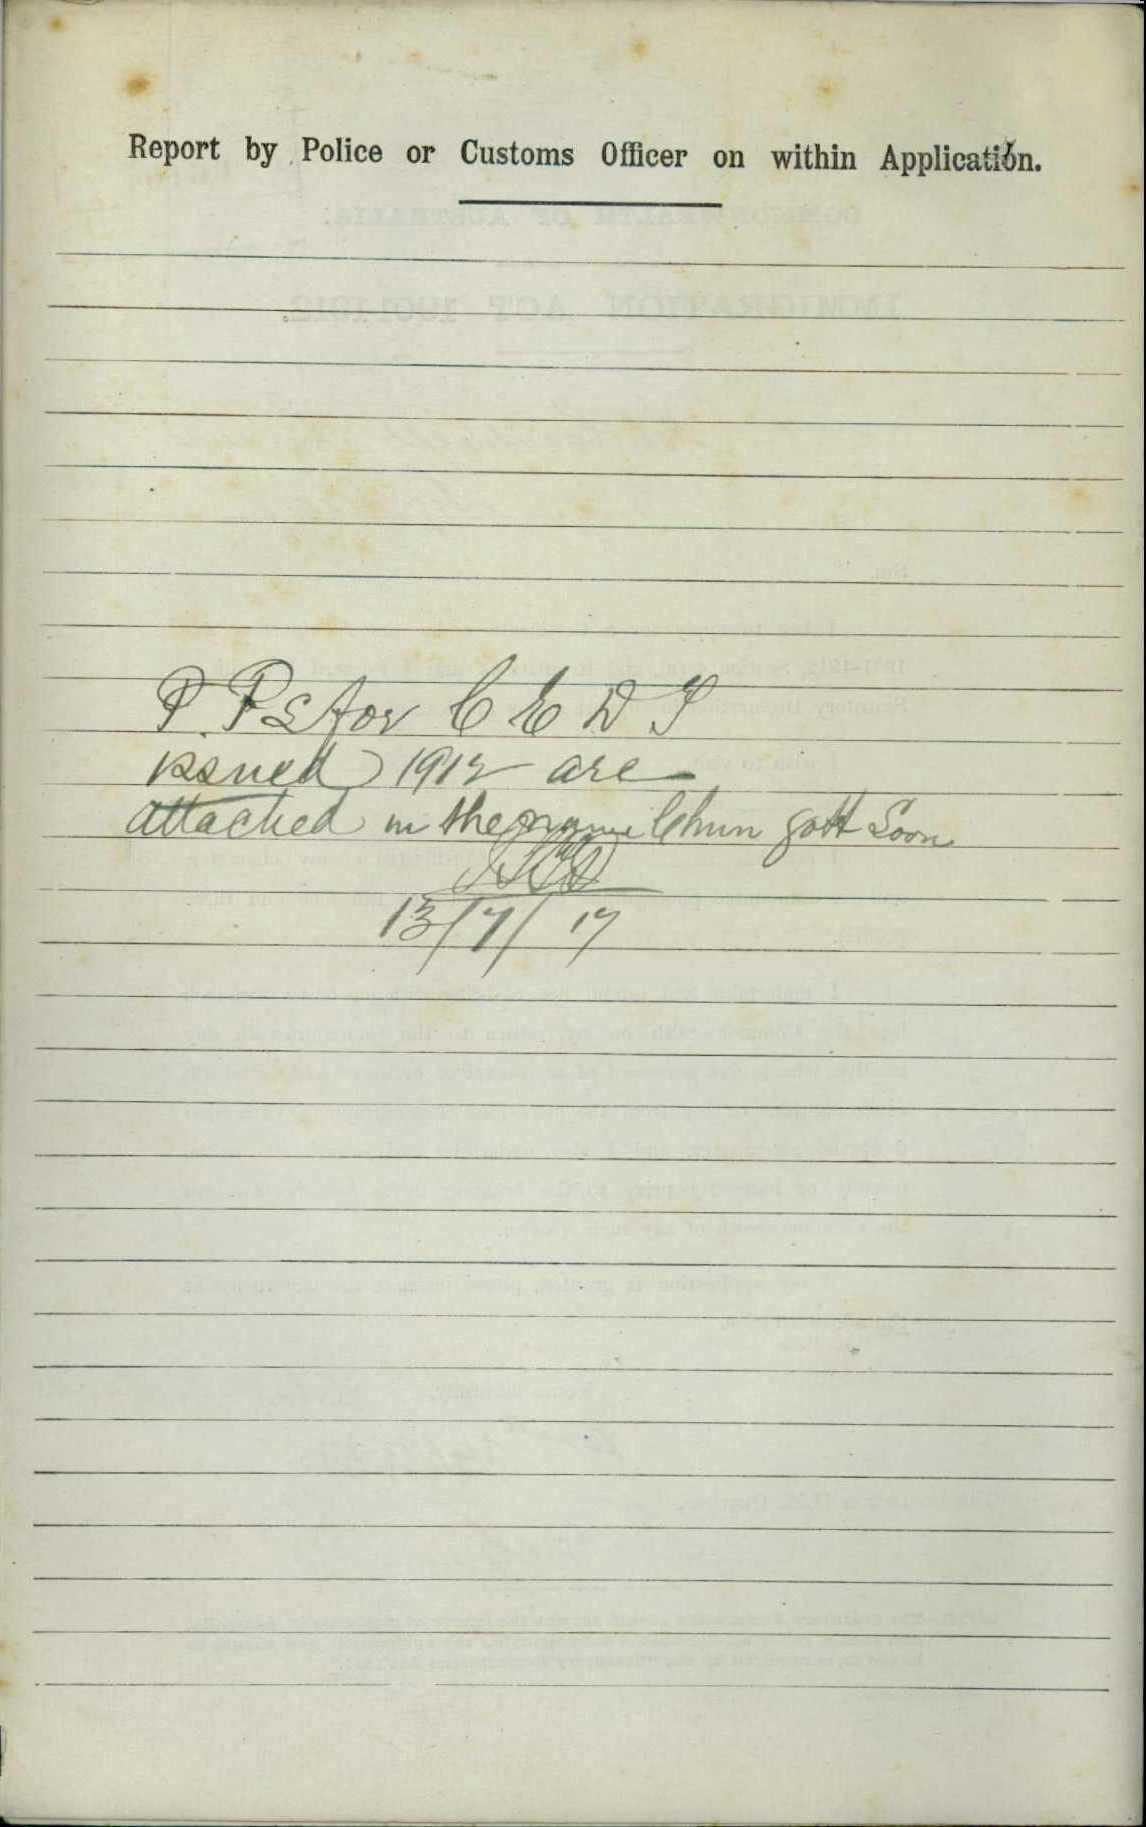 Report by Police or Customs Officer on within Application.
P. Ps for C E D T
issued 1912 are
attached in the name Chun Gott Soon
13/7/17